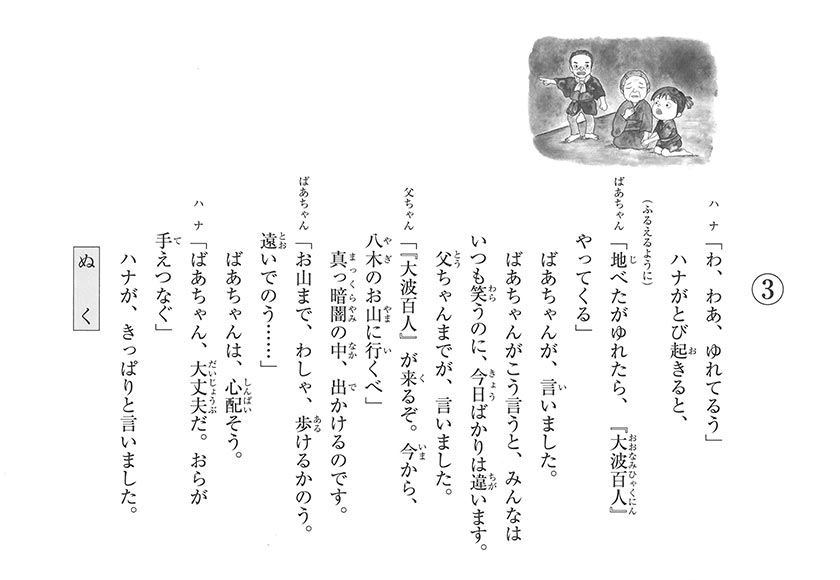 ③
ハナ「わ、わあ、ゆれてるう」
ハナがとび起きると、
(ふるえるように)
ばあちゃん「地べたがゆれたら、『大波百人』
やってくる」
ばあちゃんが、言いました。
ばあちゃんがこう言うと、みんなは
いつも笑うのに、今日ばかりは違います。
父ちゃんまでが、言いました。
父ちゃん「『大波百人』が来るぞ。今から、
八木のお山に行くべ」
真っ暗闇の中、出かけるのです。
ばあちゃん「お山まで、わしゃ、歩けるかのう。
遠いでのう……」
ばあちゃんは、心配そう。
ハナ「ばあちゃん、大丈夫だ。おらが
手えつなぐ」
ハナが、きっぱりと言いました。
ぬく